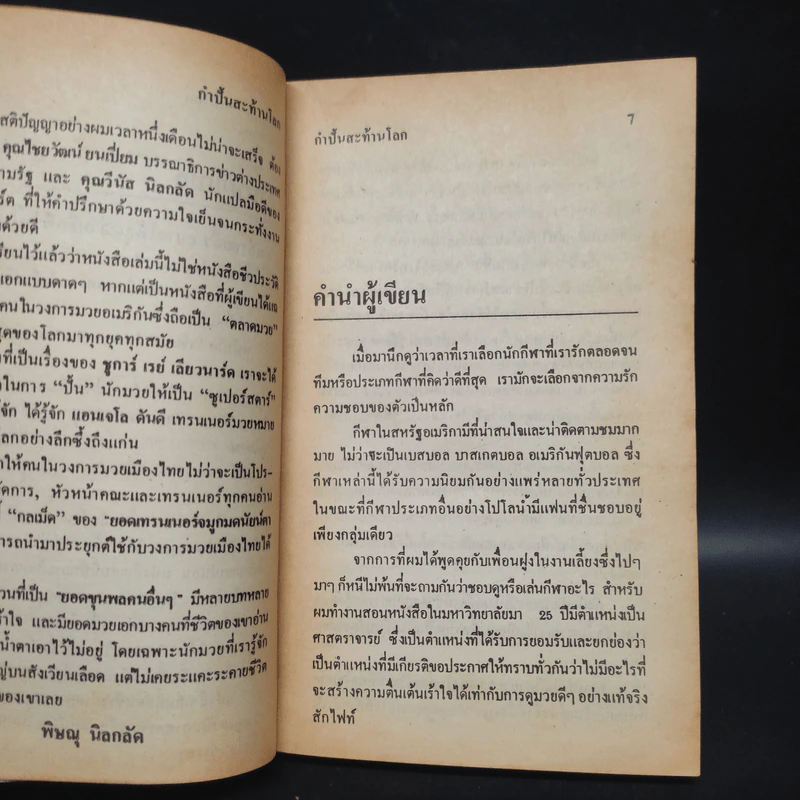 กำปั้นสะท้านโลก
สติปัญญาอย่างผมเวลาหนึ่งเดือนไม่น่าจะเสร็จ ต้อง
คุณไชยวัฒน์ ยนเปี่ยม บรรณาธิการข่าวต่างประเทศ
และ คุณวีนัส นิลกลัด นักแปลมือดีของ
ที่ให้คำปรึกษาด้วยความใจเย็นจนกระทั่งงาน
ด้วยดี
ไว้แล้วว่าหนังสือเล่มนี้ไม่ใช่หนังสือชีวประวัติ
แบบดาดๆ หากแต่เป็นหนังสือที่ผู้เขียนได้แฉ
คนในวงการมวยอเมริกันซึ่งถือเป็น “ตลาดมวย”
ของโลกมาทุกยุคทุกสมัย
ที่เป็นเรื่องของ ชูการ์ เรย์ เลียวนาร์ด เราจะได้
ในการ “ปั้น” นักมวยให้เป็น “ซูเปอร์สตาร์”
ได้รู้จัก แอนเจโล ดันดี เทรนเนอร์มวยหมาย
อย่างลึกซึ้งถึงแก่น
ให้คนในวงการมวยเมืองไทยไม่ว่าจะเป็นโปร-
หัวหน้าคณะและเทรนเนอร์ทุกคนอ่าน
“กลเม็ด” ของ “ยอดเทรนเนอร์จมูกมดนัยน์ตา
นำมาประยุกต์ใช้กับวงการมวยเมืองไทยได้
ที่เป็น “ยอดขุนพลคนอื่นๆ” มีหลายบทหลาย
และมียอดมวยเอกบางคนที่ชีวิตของเขาอ่าน
น้ำตาเอาไว้ไม่อยู่ โดยเฉพาะนักมวยที่เรารู้จัก
บนสังเวียนเลือด แต่ไม่เคยระแคะระคายชีวิต
ของเขาเลย
พิษณุ นิลกลัด
7
กำปั้นสะท้านโลก
คำนำผู้เขียน
เมื่อมานึกดูว่าเวลาที่เราเลือกนักกีฬาที่เรารักตลอดจน
ทีมหรือประเภทกีฬาที่คิดว่าดีที่สุด เรามักจะเลือกจากความรัก
ความชอบของตัวเป็นหลัก
กีฬาในสหรัฐอเมริกามีที่น่าสนใจและน่าติดตามชมมาก
มาย ไม่ว่าจะเป็นเบสบอล บาสเกตบอล อเมริกันฟุตบอล ซึ่ง
กีฬาเหล่านี้ได้รับความนิยมกันอย่างแพร่หลายทั่วประเทศ
ในขณะที่กีฬาประเภทอื่นอย่างโปโลน้ำมีแฟนที่ชื่นชอบอยู่
เพียงกลุ่มเดียว
จากการที่ผมได้พูดคุยกับเพื่อนฝูงในงานเลี้ยงซึ่งไปๆ
มาๆ ก็หนีไม่พ้นที่จะถามกันว่าชอบดูหรือเล่นกีฬาอะไร สำหรับ
ผมทำงานสอนหนังสือในมหาวิทยาลัยมา 25 ปีมีตำแหน่งเป็น
ศาสตราจารย์ ซึ่งเป็นตำแหน่งที่ได้รับการยอมรับและยกย่องว่า
เป็นตำแหน่งที่มีเกียรติขอประกาศให้ทราบทั่วกันว่าไม่มีอะไรที่
จะสร้างความตื่นเต้นเร้าใจได้เท่ากับการดูมวยดีๆ อย่างแท้จริง
สักไฟท์